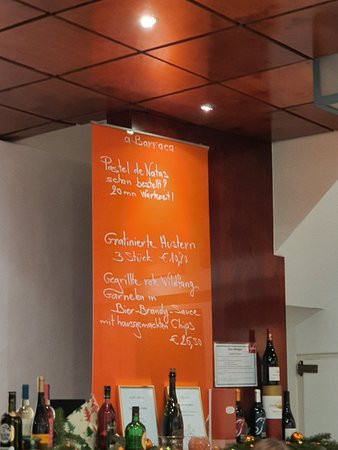 a Barraca
Pastel de Natas
schon bestellt?
20mn Wartezeit!
Gratinierte Austern
3 Stück €
Gegrillte rote Wildfang
Garnelen in
Bier-Brandy-Sauce
mit hausgemachten Chips
€ 26,50